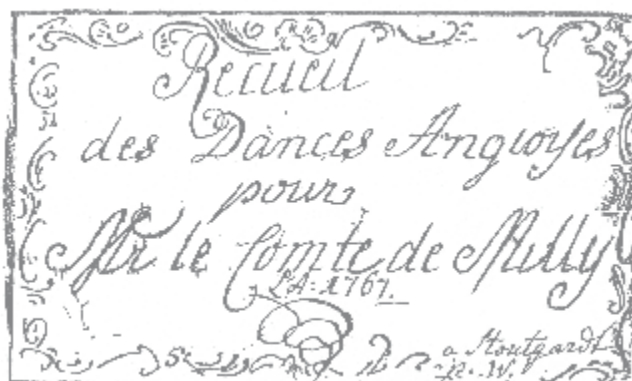 Recueil
des Dances Angloises
pour
Mr le Comte de Milly
LA: 1767.
a Stoutgardt